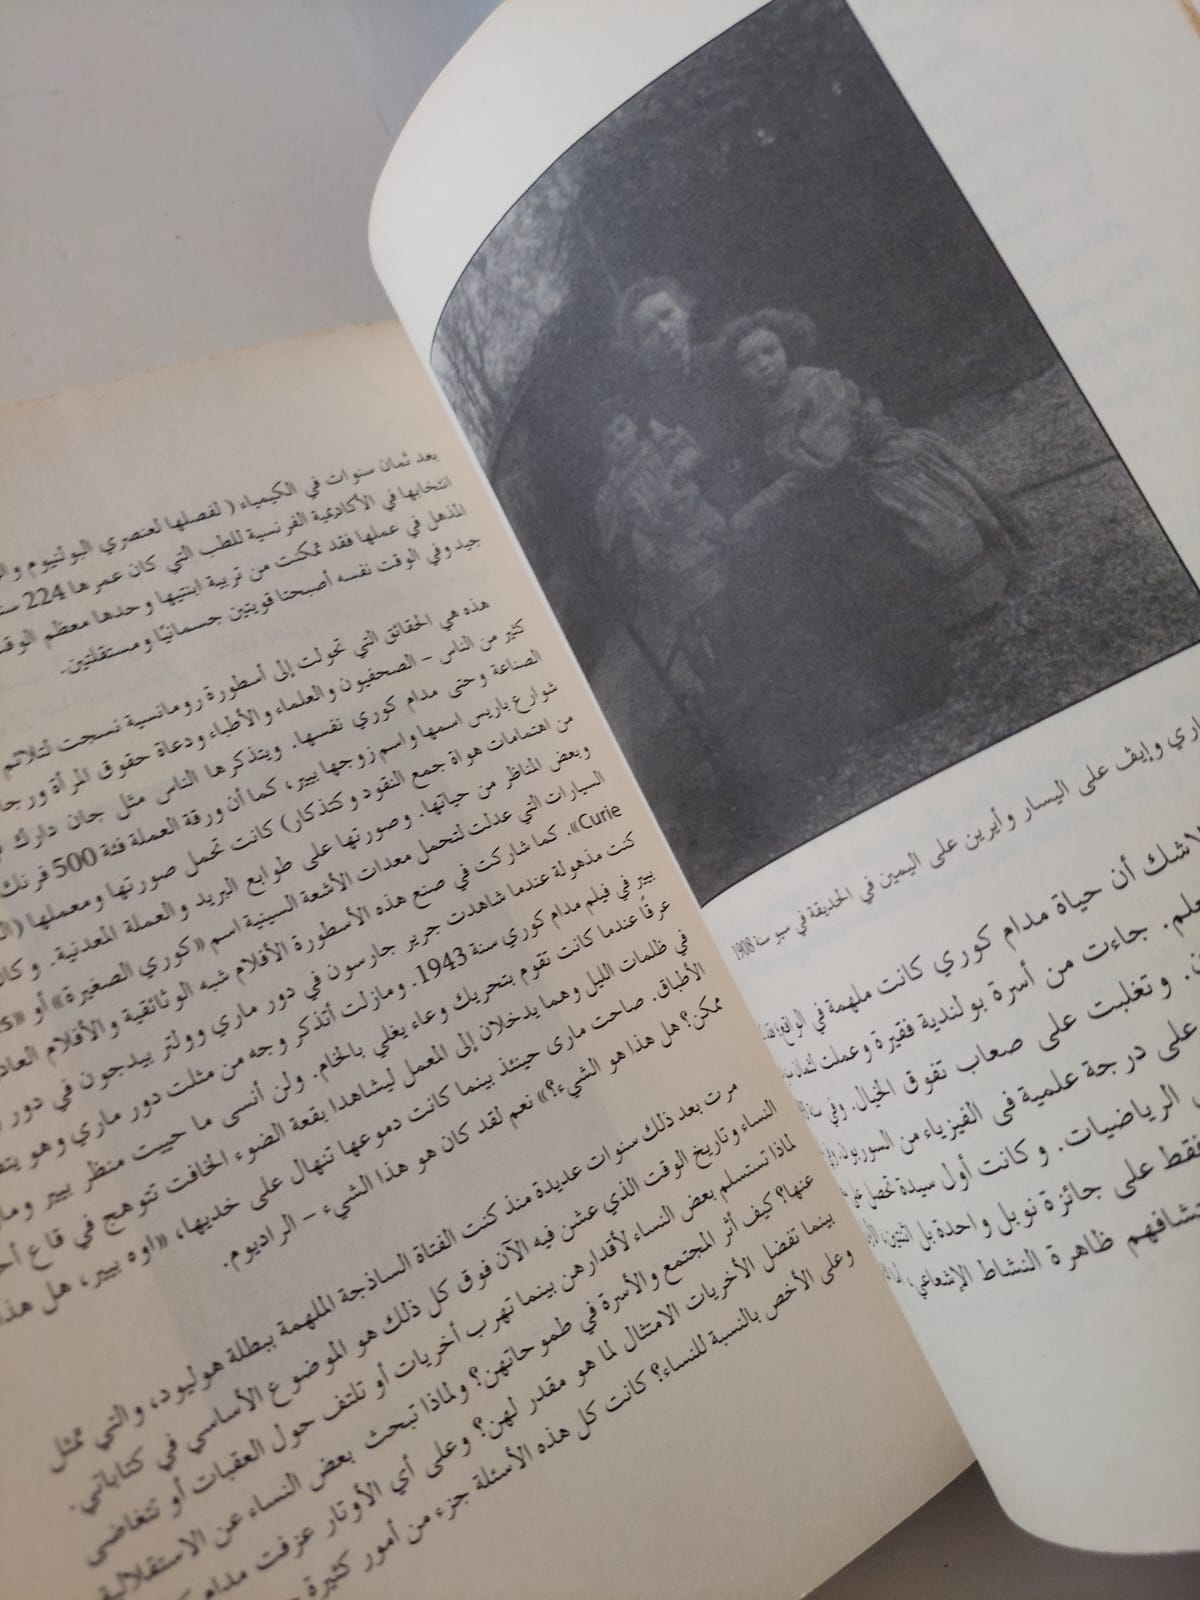 ماري وإيڤ على اليسار وأيرين على اليمين في الحديقة في سو سنة 1908
لاشك أن حياة مدام كوري كانت ملهمة في الواقع
جاءت من أسرة بولندية فقيرة وعملت
وتغلبت على صعاب تفوق الخيال. وفي
على درجة علمية فى الفيزياء من السوربون
الرياضيات. وكانت أول سيدة تحصل على
فقط على جائزة نوبل واحدة بل اثنتين،
ظاهرة النشاط الإشعاعي،
بعد ثمان سنوات في الكيمياء ( لفصلها لعنصري البولنيوم
انتخابها في الأكاديمية الفرنسية للطب التي كان عمرها 224
المذهل في عملها فقد تمكنت من تربية ابنتيها وحدها معظم الوقت
جيد وفي الوقت نفسه أصبحتا قويتين جسمانيًا ومستقلتين.
هذه هي الحقائق التي تحولت إلى أسطورة رومانسية نسجت لتلائم
كثير من الناس – الصحفيون والعلماء والأطباء ودعاة حقوق المرأة
الصناعة وحتى مدام كوري نفسها. ويتذكرها الناس مثل جان دارك
شوارع باريس اسمها واسم زوجها بيير، كما أن ورقة العملة فئة 500 فرنك
من اهتمامات هواة جمع النقود وكتذكار) كانت تحمل صورتها ومعملها
وبعض المناظر من حياتها. وصورتها على طوابع البريد والعملة المعدنية.
السيارات التي عدلت لتحمل معدات الأشعة السينية اسم «كوري الصغيرة» أو
Curie». كما شاركت في صنع هذه الأسطورة الأفلام شبه الوثائقية والأفلام
كنت مذهولة عندما شاهدت جرير جارسون في دور ماري وولتر بيدجون في دور
بيير في فيلم مدام كوري سنة 1943. ومازلت أتذكر وجه من مثلت دور ماري وهو
عرقًا عندما كانت تقوم بتحريك وعاء يغلي بالخام. ولن أنسى ما حييت منظر بيير
في ظلمات الليل وهما يدخلان إلى المعمل ليشاهدا بقعة الضوء الخافت تتوهج في قاع
الأطباق. صاحت مارى حينئذ بينما كانت دموعها تنهال على خديها، «اوه بيير، هل هذا
ممكن؟ هل هذا هو الشيء؟» نعم لقد كان هو هذا الشيء – الراديوم.
مرت بعد ذلك سنوات عديدة منذ كنت الفتاة الساذجة الملهمة ببطلة هوليود، والتي تمثل
النساء وتاريخ الوقت الذي عشن فيه الآن فوق كل ذلك هو الموضوع الأساسي في كتاباتي.
لماذا تستسلم بعض النساء لأقدارهن بينما تهرب أخريات أو تلتف حول العقبات أو تتغاضى
عنها؟ كيف أثر المجتمع والأسرة في طموحاتهن؟ ولماذا تبحث بعض النساء عن الاستقلالية
بينما تفضل الأخريات الامتثال لما هو مقدر لهن؟ وعلى أي الأوتار عزفت مدام
وعلى الأخص بالنسبة للنساء؟ كانت كل هذه الأسئلة جزء من أمور كثيرة